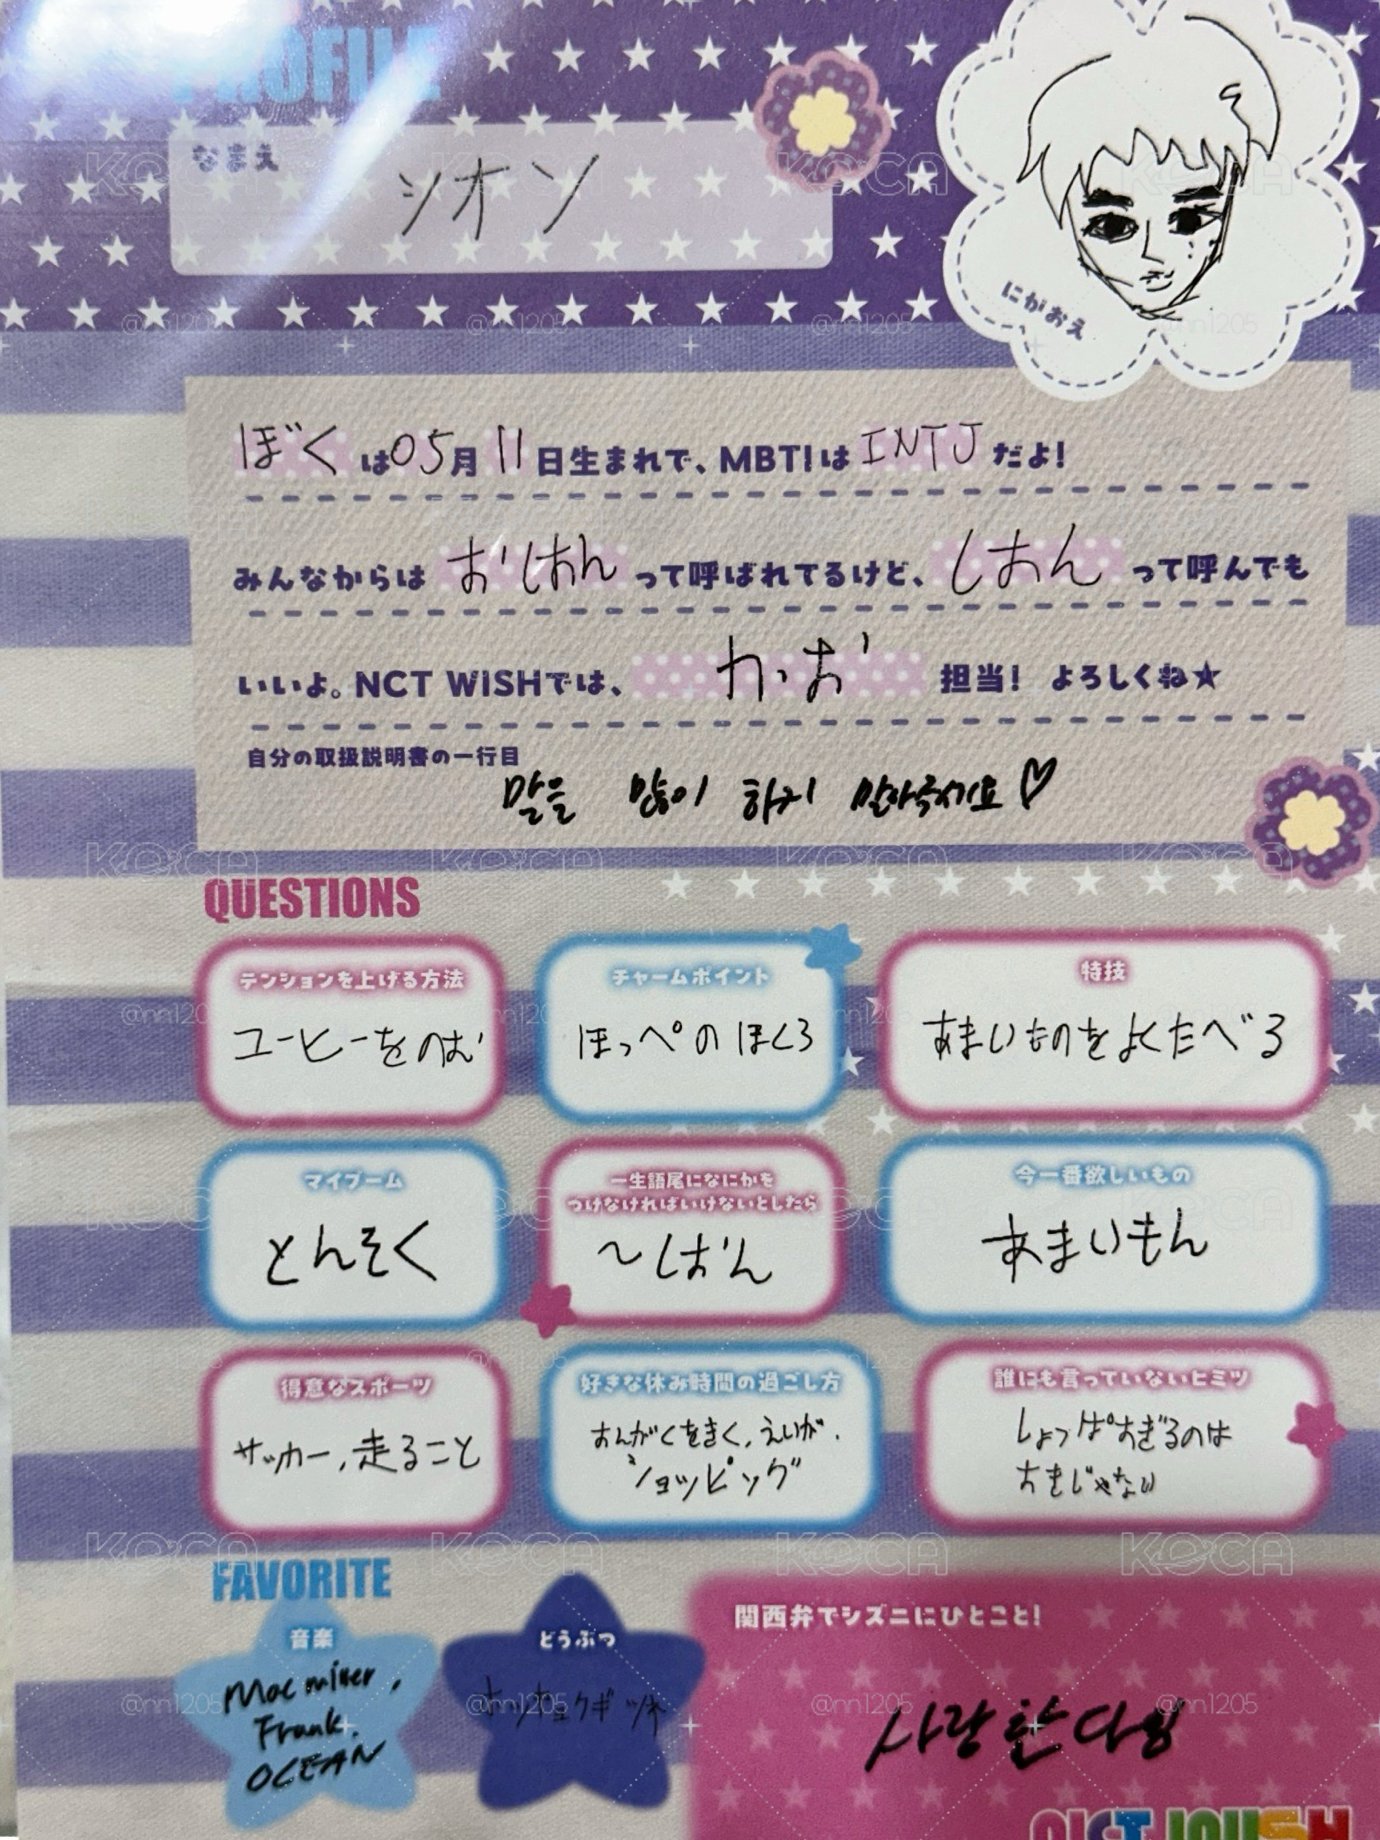 PROFILE
なまえ
シオン
にがおえ
ぼくは05月11日生まれで、MBTIはINTJだよ!
みんなからは おしおん って呼ばれてるけど、しおん って呼んでも
いいよ。NCT WISHでは、かお 担当! よろしくね★
自分の取扱説明書の一行目
말을 많이 하지 말아주세요♡
QUESTIONS
テンションを上げる方法
コーヒーをのむ
チャームポイント
ほっぺのほくろ
特技
あまいものをよくたべる
マイブーム
とんそく
一生語尾になにかを
つけなければいけないとしたら
〜しおん
今一番欲しいもの
あまいもん
得意なスポーツ
サッカー、走ること
好きな休み時間の過ごし方
おんがくをきく、えいが、
ショッピング
誰にも言っていないヒミツ
しょっぱすぎるのは
すきじゃない
FAVORITE
音楽
Mac miller,
Frank.
OCEAN
どうぶつ
ホッキョクギツネ
関西弁でシズニにひとこと!
사랑한다잉
NCT WISH
KOCA
@nn1205